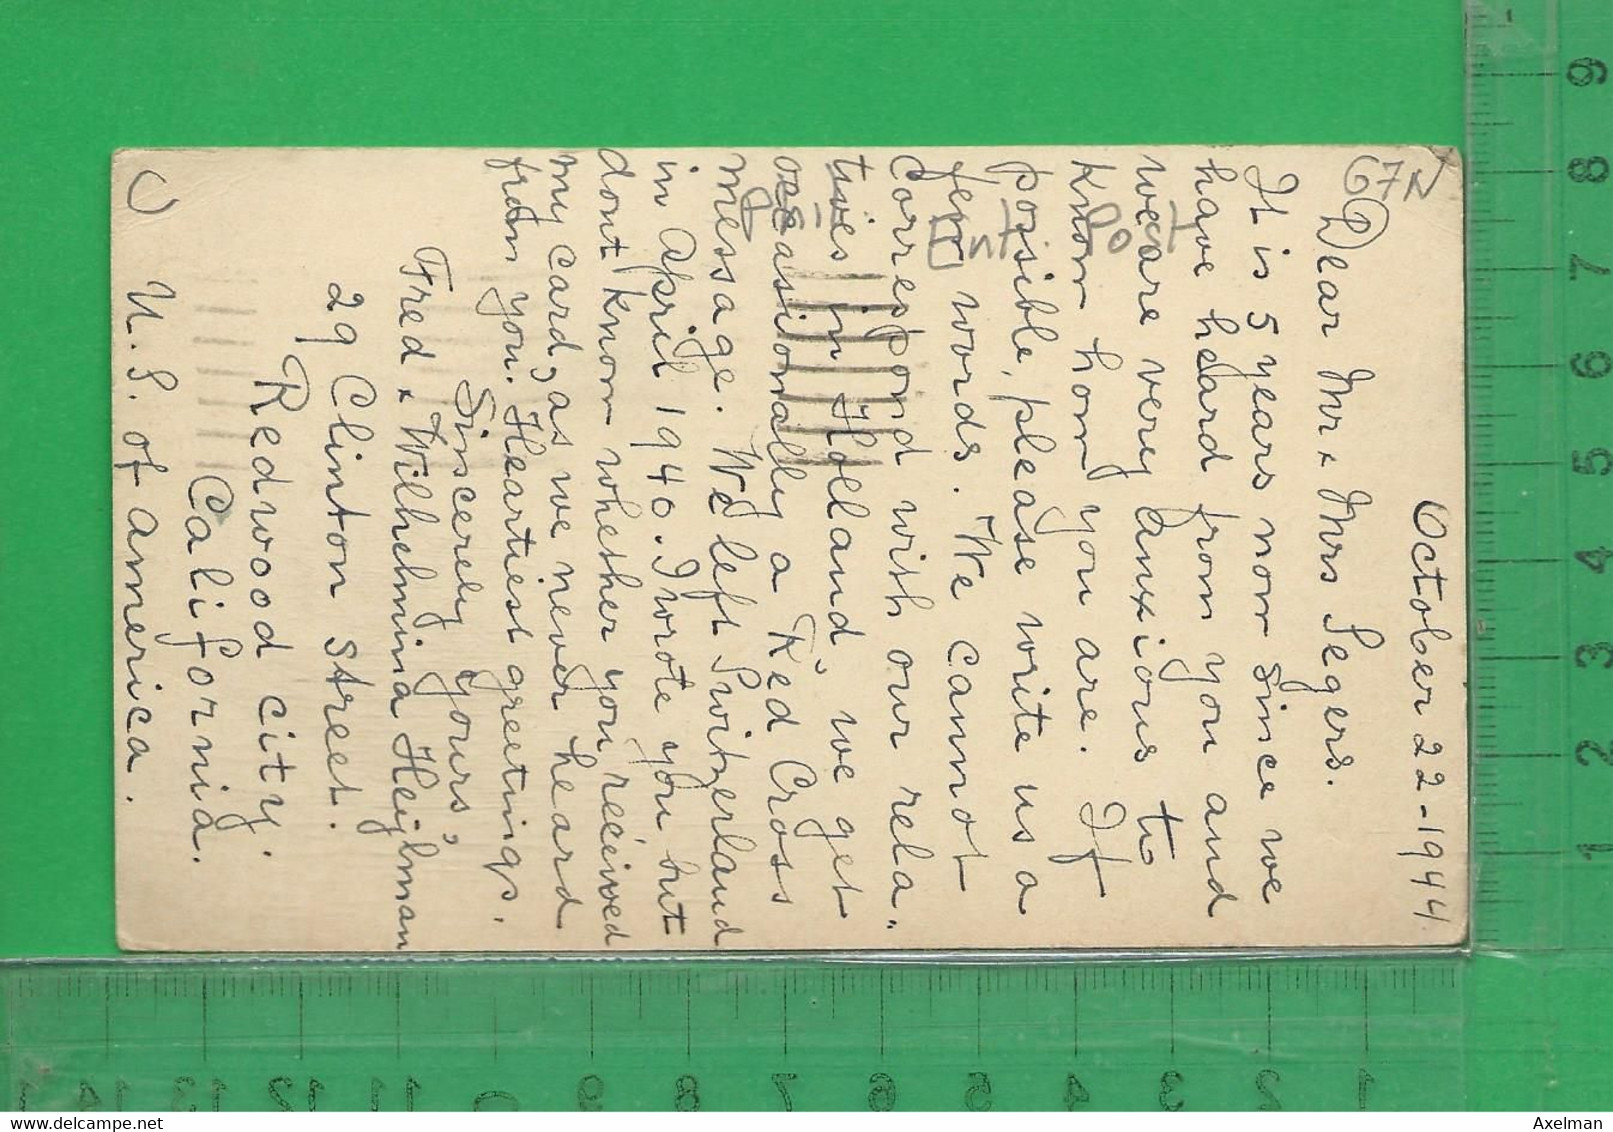 October 22-1944
Dear Mr & Mrs Segers.
It is 5 years now since we
have heard from you and
we are very anxious to
know how you are. If
possible, please write us a
few words. We cannot
correspond with our rela-
tives in Holland, we get
occasionally a Red Cross
message. We left Switzerland
in April 1940. I wrote you but
dont know whether you received
my card, as we never heard
from you. Heartiest greetings.
Sincerely yours,
Fred & Wilhelmina Heijlman
29 Clinton Street.
Redwood City.
California.
U. S. of America.
67N
1 2 3 4 5 6 7 8 9
1 2 3 4 5 6 7 8 9 10 11 12 13 14
delcampe.net
Axelman